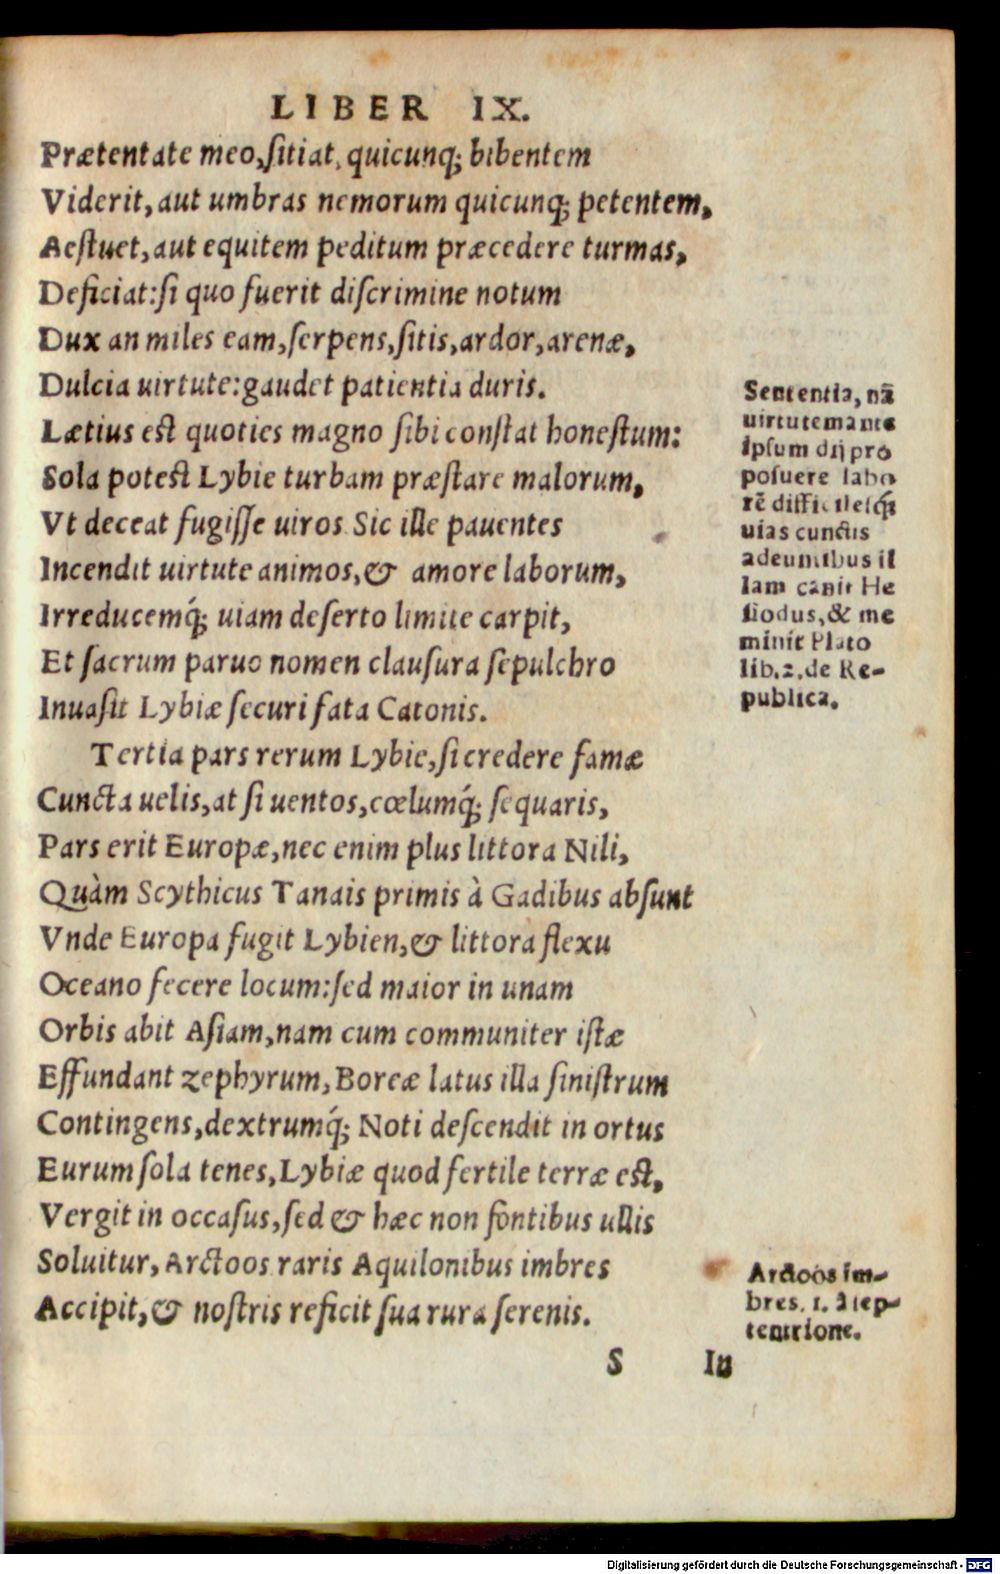 LIBER IX.
Prætentate meo, sitiat, quicunq; bibentem
Viderit, aut umbras nemorum quicunq; petentem,
Aestuet, aut equitem peditum præcedere turmas,
Deficiat: si quo fuerit discrimine notum
Dux an miles eam, serpens, sitis, ardor, arenæ,
Dulcia uirtute: gaudet patientia duris.
Lætius est quoties magno sibi constat honestum:
Sola potest Lybie turbam præstare malorum,
Vt deceat fugisse uiros Sic ille pauentes
Incendit uirtute animos, & amore laborum,
Irreducemq́; uiam deserto limite carpit,
Et sacrum paruo nomen clausura sepulchro
Inuasit Lybiæ securi fata Catonis.
Tertia pars rerum Lybie, si credere famæ
Cuncta uelis, at si uentos, cœlumq́; sequaris,
Pars erit Europæ, nec enim plus littora Nili,
Quàm Scythicus Tanais primis à Gadibus absunt
Vnde Europa fugit Lybien, & littora flexu
Oceano fecere locum: sed maior in unam
Orbis abit Asiam, nam cum communiter istæ
Effundant zephyrum, Boreæ latus illa sinistrum
Contingens, dextrumq́; Noti descendit in ortus
Eurum sola tenes, Lybiæ quod fertile terræ est,
Vergit in occasus, sed & hæc non fontibus ullis
Soluitur, Arctoos raris Aquilonibus imbres
Accipit, & nostris reficit sua rura serenis.
S In
Sententia, nā
uirtutem ante
ipsum dij pro
posuere labo
rē difficilesq́;
uias cunctis
adeuntibus il
lam canit He
siodus, & me
minit Plato
lib. 2. de Re-
publica.
Arctoos im-
bres. i. à sep-
tentrione.
Digitalisierung gefördert durch die Deutsche Forschungsgemeinschaft - DFG